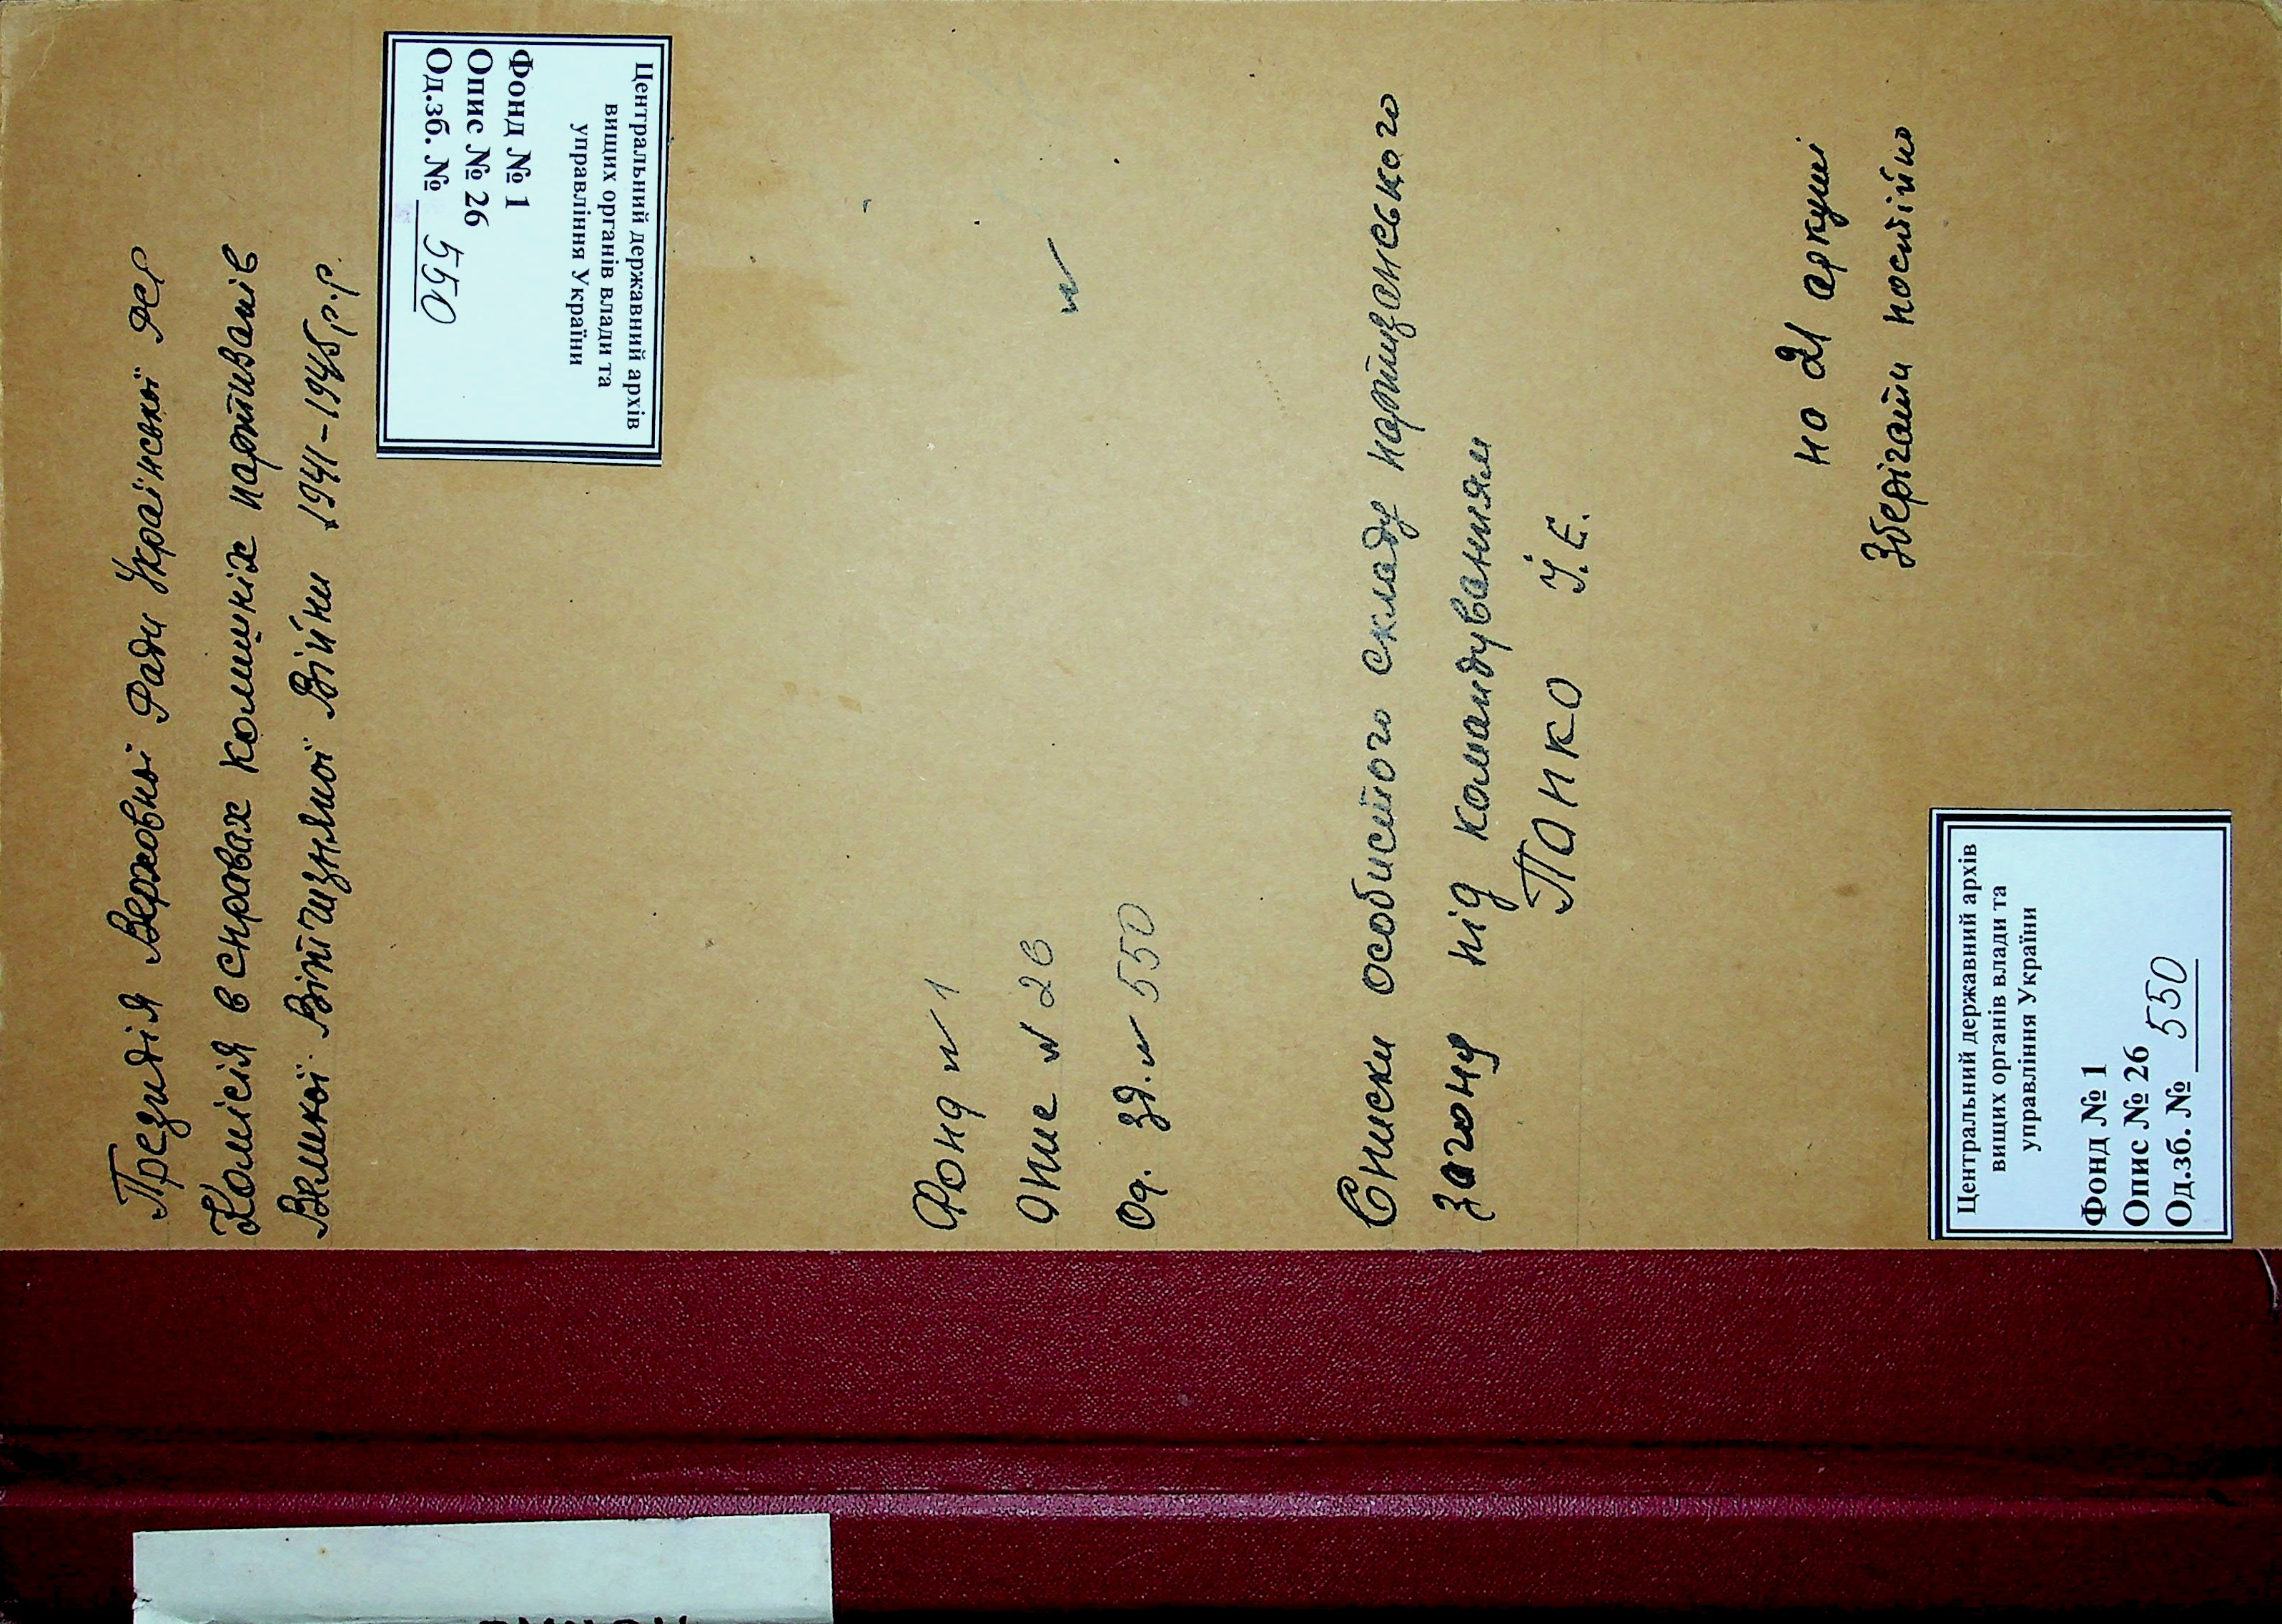 Президія Верховної Ради Української РСР
Комісія в справах колишніх партизанів
Великої Вітчизняної Війни 1941-1945 р.р.
Центральний державний архів
вищих органів влади та
управління України
Фонд № 1
Опис № 26
Од.зб. № 550
Фонд № 1
Опис № 26
Од. зб. № 550
№
Списки особистого складу партизанського
загону під командуванням
Панко І. Е.
на 21 аркуші
Зберігати постійно
Центральний державний архів
вищих органів влади та
управління України
Фонд № 1
Опис № 26
Од.зб. № 550